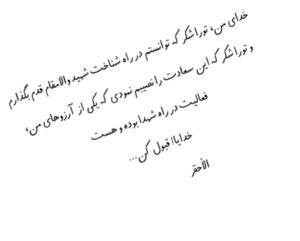 خدای من، تو را شکر که توانستم در راه شناخت شهید والامقام قدم بگذارم
و تو را شکر که این سعادت را نصیبم نمودی که یکی از آرزوهای من،
فعالیت در راه شهدا بوده و هست
خدایا! قبول کن...
الأحقر